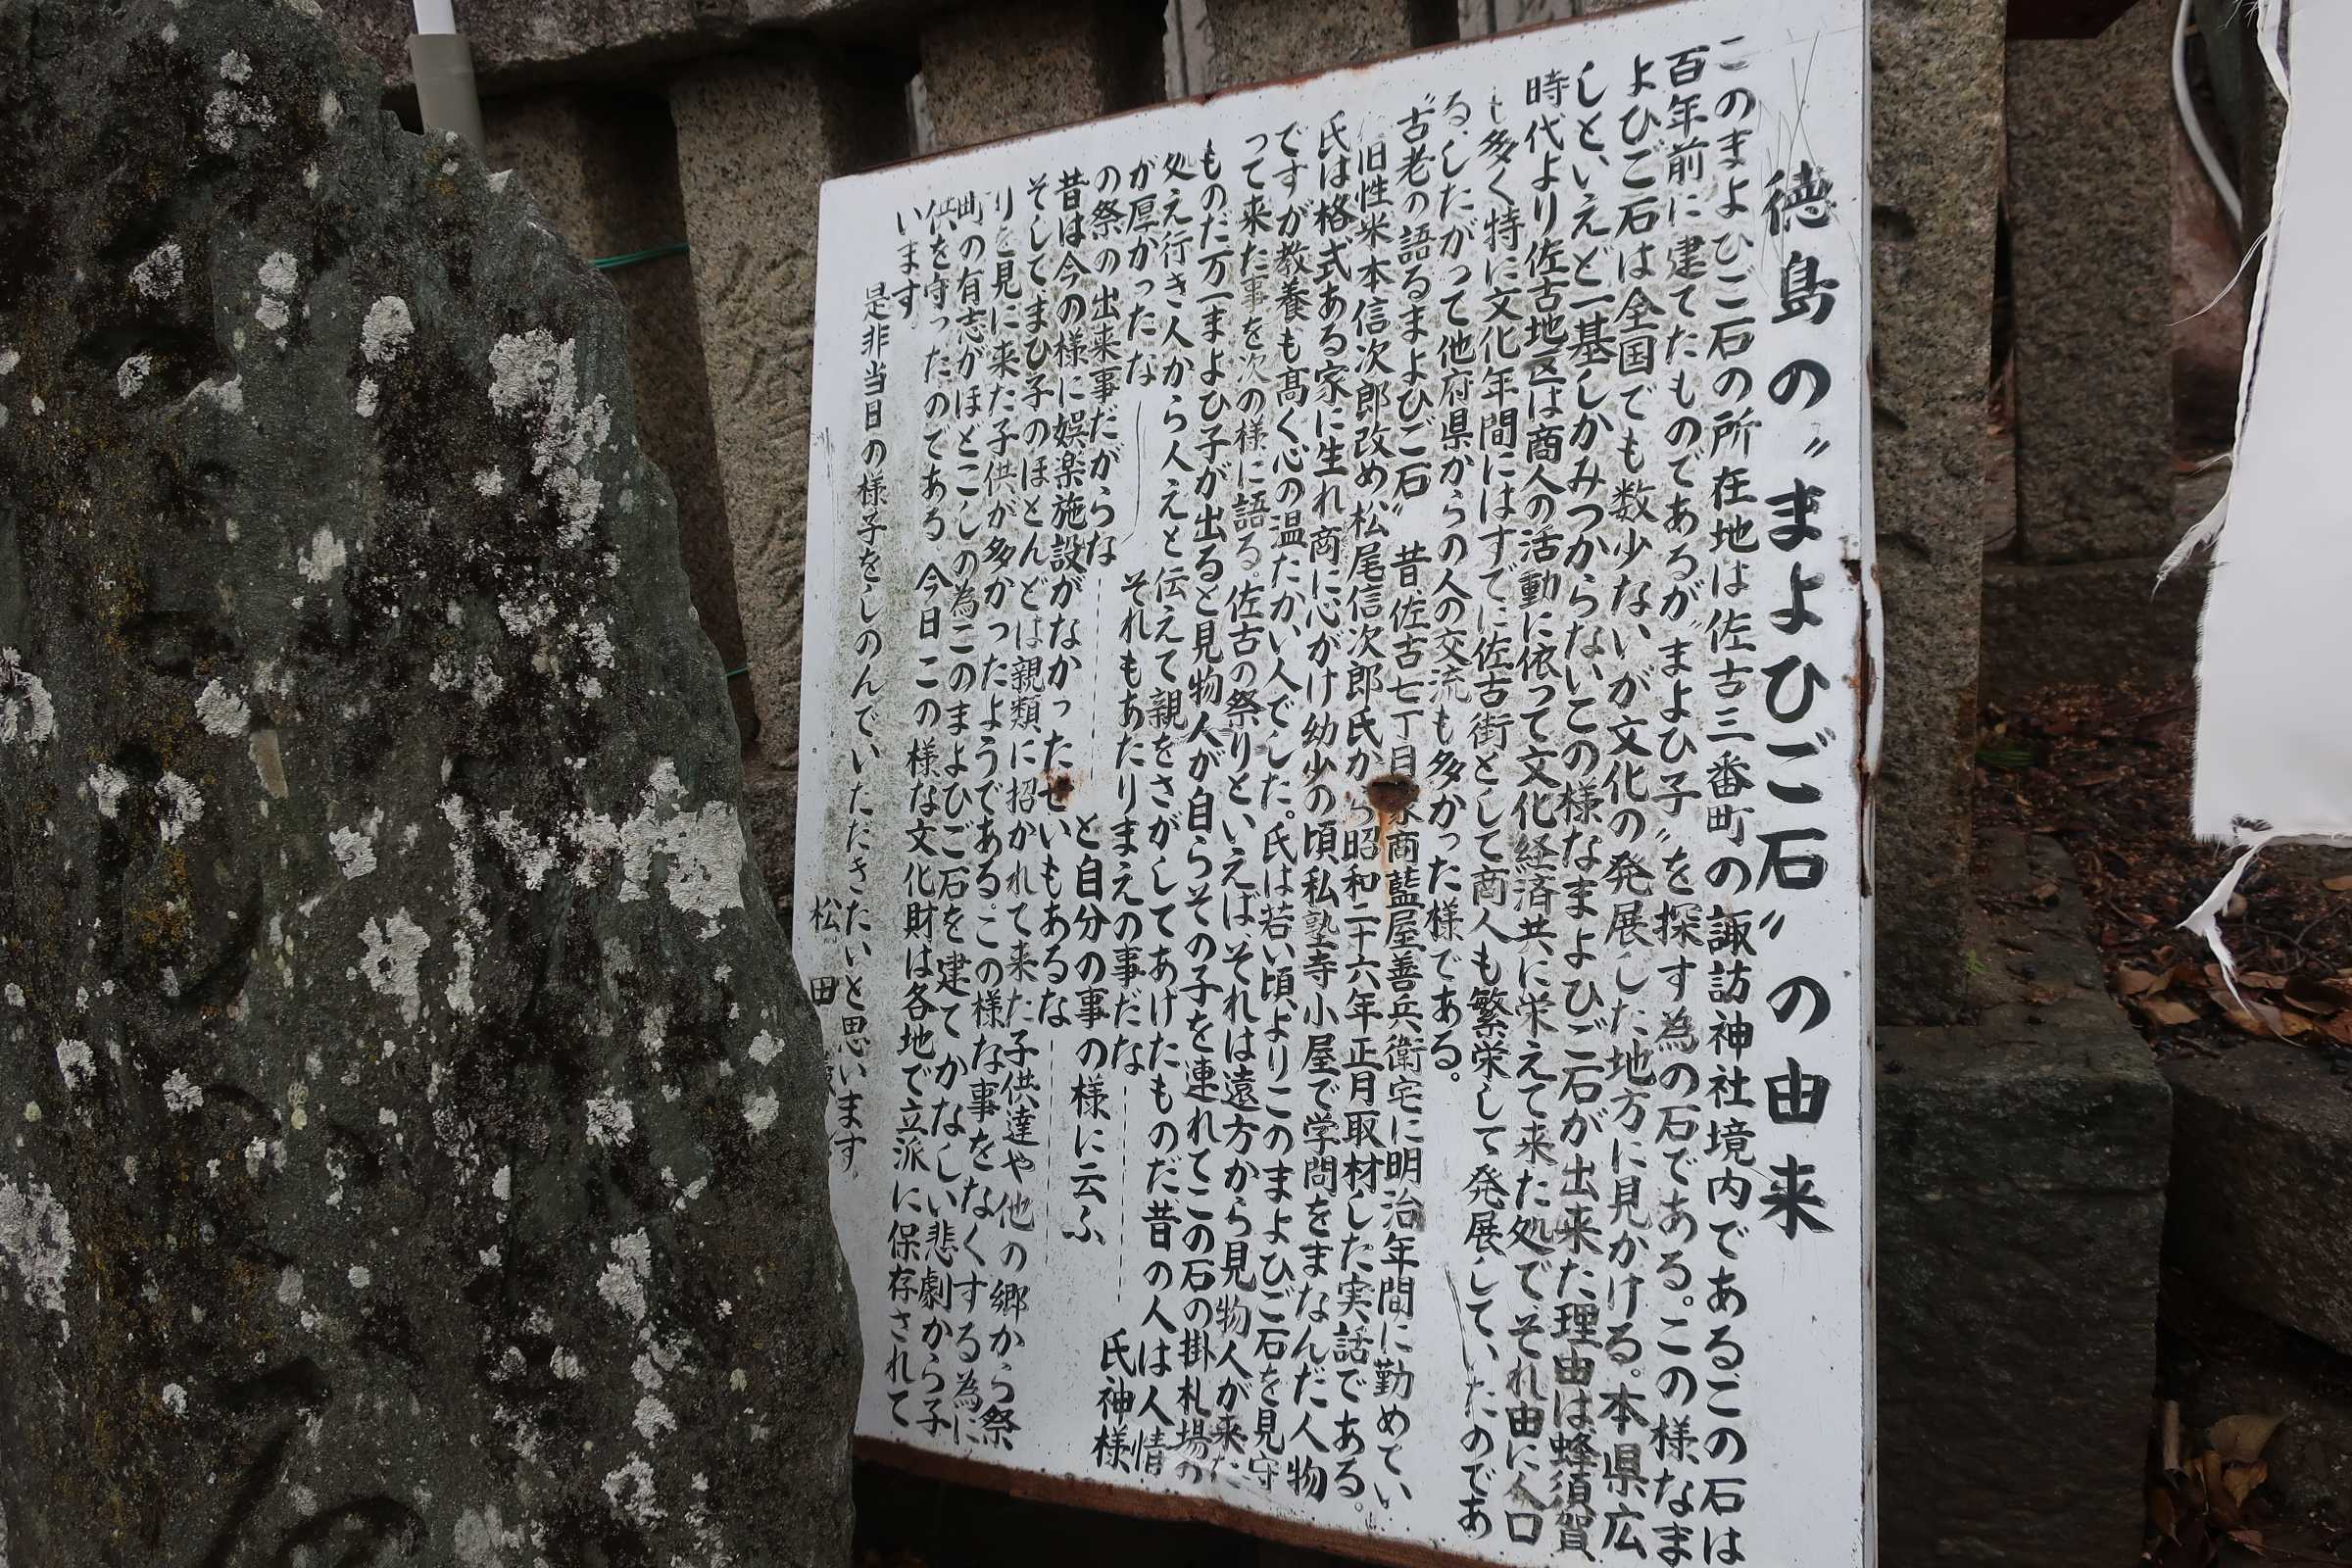 徳島の〝まよひご石〟の由来
このまよひご石の所在地は佐古三番町の諏訪神社境内であるこの石は
百年前に建てたものであるが〝まよひ子〟を探す為の石である。この様なま
よひご石は全国でも数少ないが文化の発展した地方に見かける。本県広
しといえど一基しかみつからないこの様なまよひご石が出来た理由は蜂須賀
時代より佐古地区は商人の活動に依って文化経済共に栄えて来た処で、それ由に人口
も多く特に文化年間にはすでに佐古街として商人も繁栄して発展していたのであ
る、したがって他府県からの人の交流も多かった様である。
〝古老の語るまよひご石〟 昔、佐古七丁目 商藍屋善兵衛宅に明治年間に勤めてい
旧性米本信次郎改め、松尾信次郎氏から昭和二十六年正月取材した実話である。
氏は格式ある家に生れ商に心がけ幼少の頃私塾寺小屋で学問をまなんだ人物
ですが教養も高く心の温たかい人でした。氏は若い頃よりこのまよひご石を見守
って来た事を次の様に語る。佐古の祭りといえば、それは遠方から見物人が来た
ものだ万一まよひ子が出ると見物人が自らその子を連れてこの石の掛札場の
処え行き人から人えと伝えて親をさがしてあげたものだ昔の人は人情
が厚かったな―― それもあたりまえの事だな------ 氏神様
の祭の出来事だがらな------ と自分の事の様に云ふ
昔は今の様に娯楽施設がなかったせいもあるな------
そしてまひ子のほとんどは親類に招かれて来た子供達や他の郷から祭
りを見に来た子供、が多かったようである。この様な事をなくする為に
町の有志がほどこしの為このまよひご石を建てかなしい悲劇から子
供を守ったのである 今日この様な文化財は各地で立派に保存されて
います。
是非当日の様子をしのんでいただきたいと思います。
松田